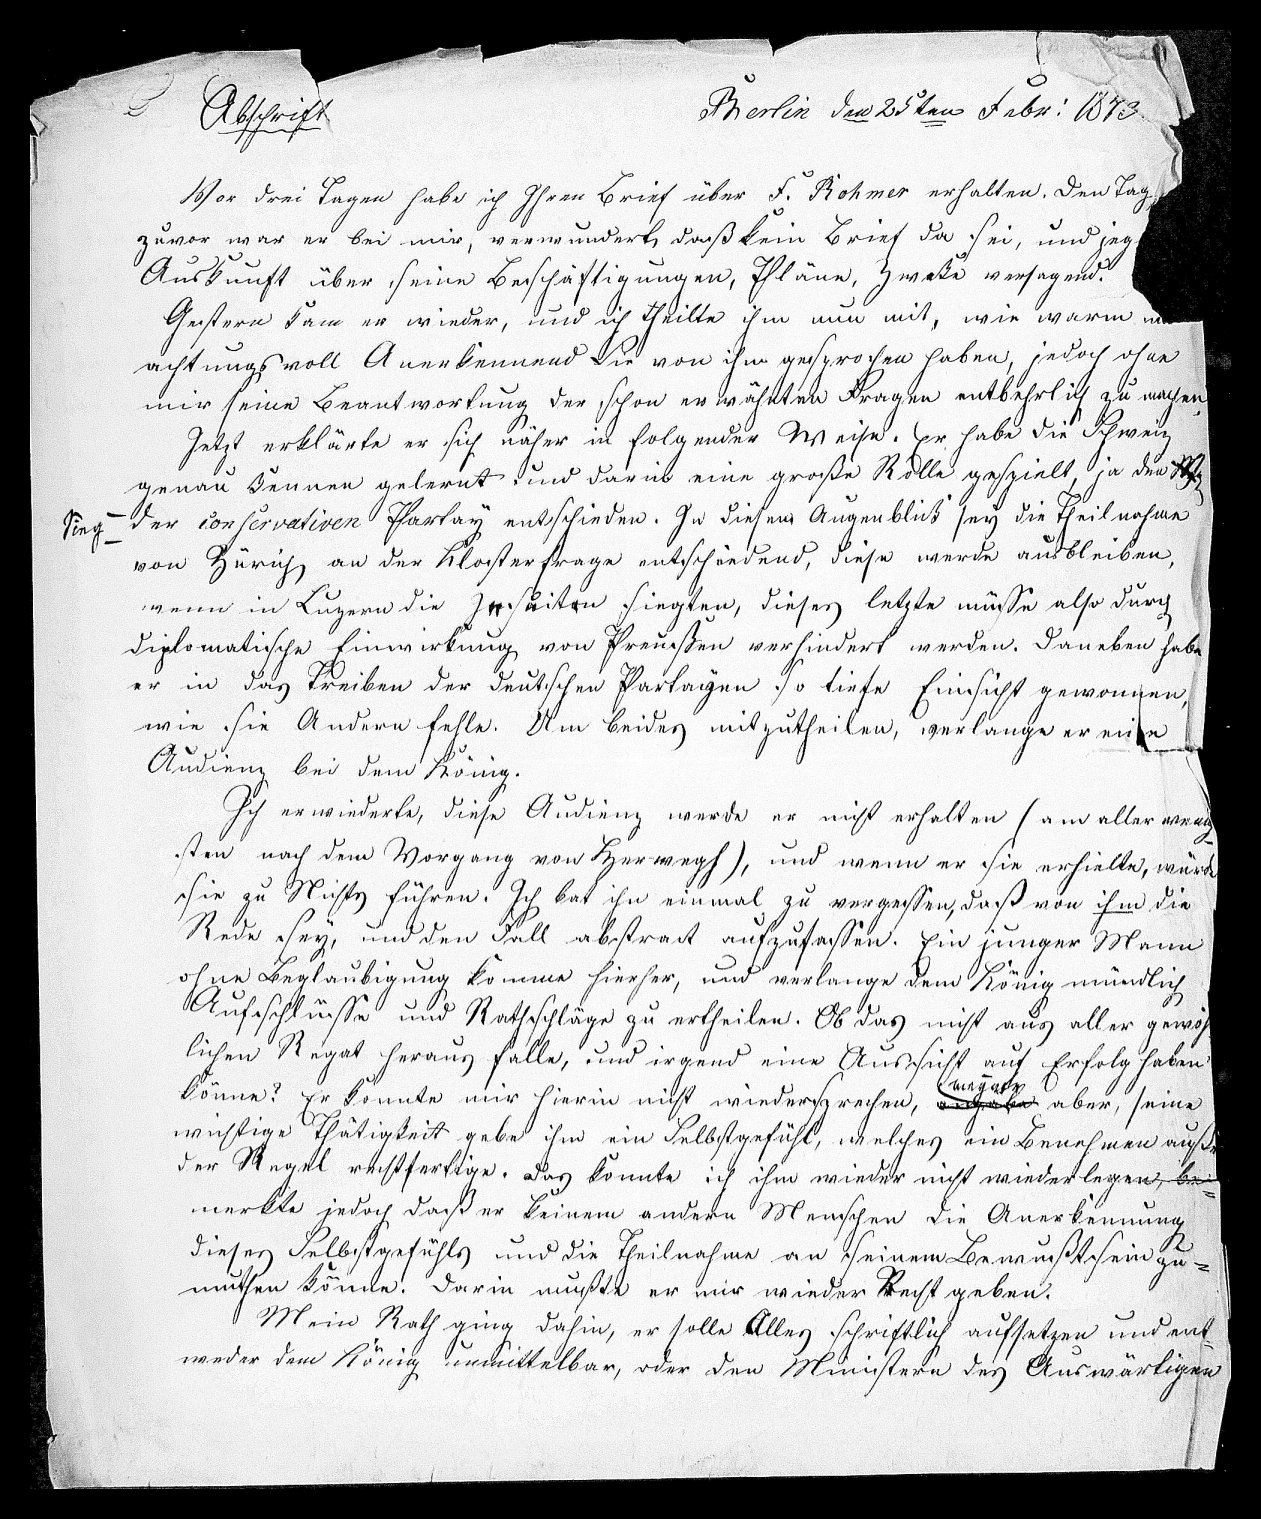 Abschrift
Berlin den 25ten Febr: 1843.
Vor drei Tagen habe ich Ihren Brief über F. Rohmer erhalten. Den Tag
zuvor war er bei mir, verwundert, daß kein Brief da sei, und jeg
Auskunft über seine Beschäftigungen, Pläne, Zwecke versagend.
Gestern kam er wieder, und ich theilte ihm nun mit, wie warm
achtungsvoll Anerkennend Sie von ihm gesprochen haben, jedoch ohne
mir seine Beantwortung der schon erwähnten Fragen entbehrlich zu machen.
Jetzt erklärte er sich näher in folgender Weise. Er habe die Schweiz
genau kennen gelernt und darin eine große Rolle gespielt, ja den
Sieg der conservativen Partay entschieden. In diesem Augenblick sey die Theilnahme
von Zürich an der Klosterfrage entscheidend, diese werde ausbleiben,
wenn in Luzern die Jesuiten siegten, dieses letzte müsse also durch
diplomatische Einwirkung von Preußen verhindert werden. Daneben habe
er in das Treiben der deutschen Partayen so tiefe Einsicht gewonnen,
wie sie Andern fehle. Um beides mitzutheilen, verlange er eine
Audienz bei dem König.
Ich erwiederte, diese Audienz werde er nicht erhalten (am aller wenig-
sten nach dem Vorgang von Herwegh), und wenn er sie erhielte, würde
sie zu Nichts führen. Ich bat ihn einmal zu vergessen, daß von ihm die
Rede sey, und den Fall abstract aufzufassen. Ein junger Mann
ohne Beglaubigung komme hierher, und verlange dem König mündlich
Aufschlüsse und Rathschläge zu ertheilen. Ob das nicht aus aller gewöh
lichen Regel heraus falle, und irgend eine Aussicht auf Erfolg haben
könne? Er konnte mir hierin nicht wiedersprechen, meynte aber, seine
wichtige Thätigkeit gebe ihm ein Selbstgefühl, welches ein Benehmen auße
der Regel rechtfertige. Das konnte ich ihm wieder nicht wiederlegen, be=
merkte jedoch daß er keinem andern Menschen die Anerkennung
dieses Selbstgefühls und die Theilnahme an seinem Bewußtsein zu=
muthen könne. Darin mußte er mir wieder Recht geben.
Mein Rath ging dahin, er solle Alles schriftlich aufsetzen und ent-
weder dem König unmittelbar, oder den Ministern des Auswärtigen